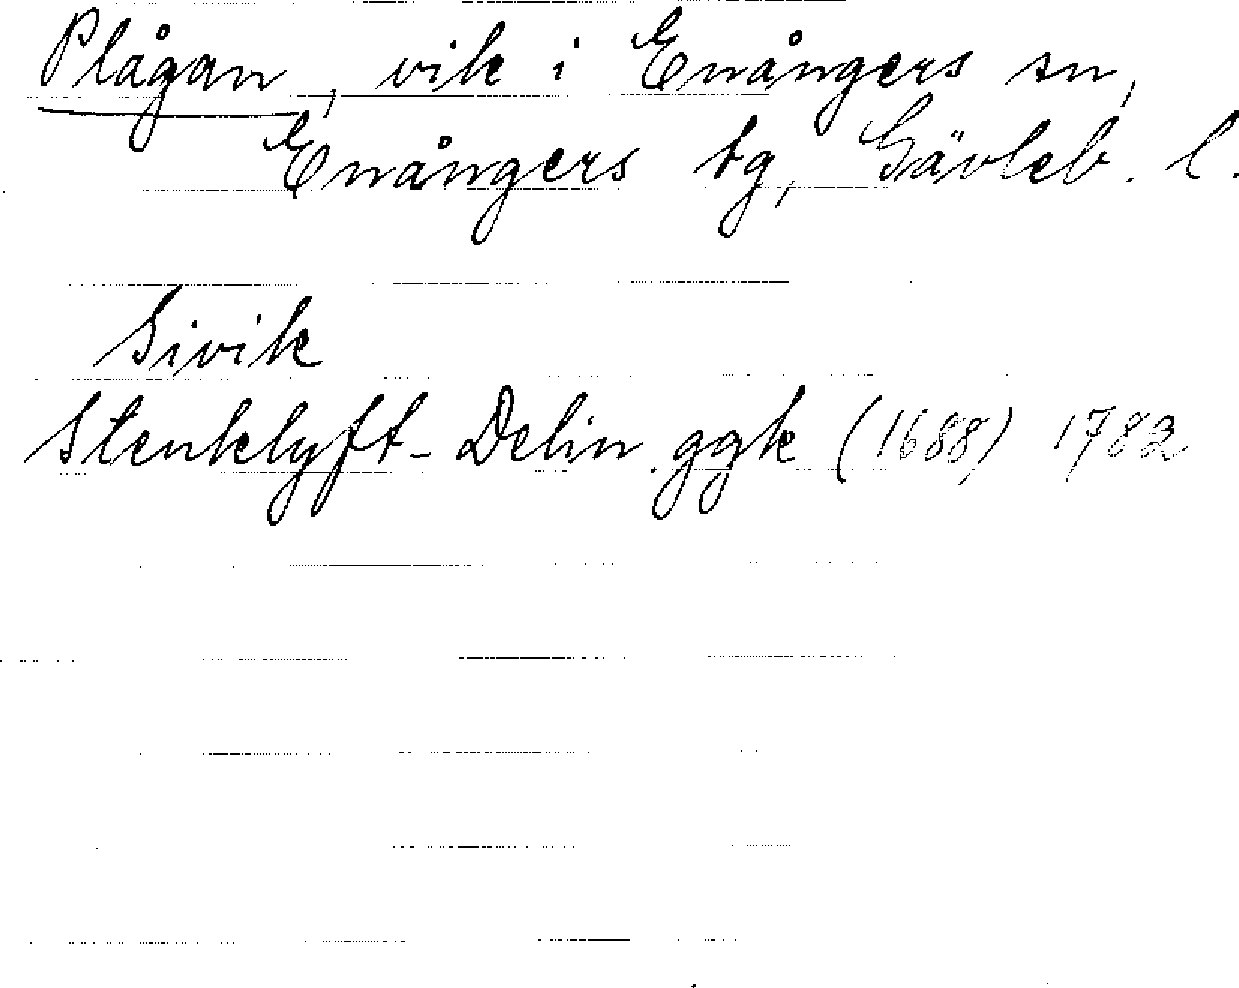 Plågan, vik i Enångers sn,
Enångers tg, Gävleb. l.
Sivik
Stenklyft- Delin ggk (1688) 1782